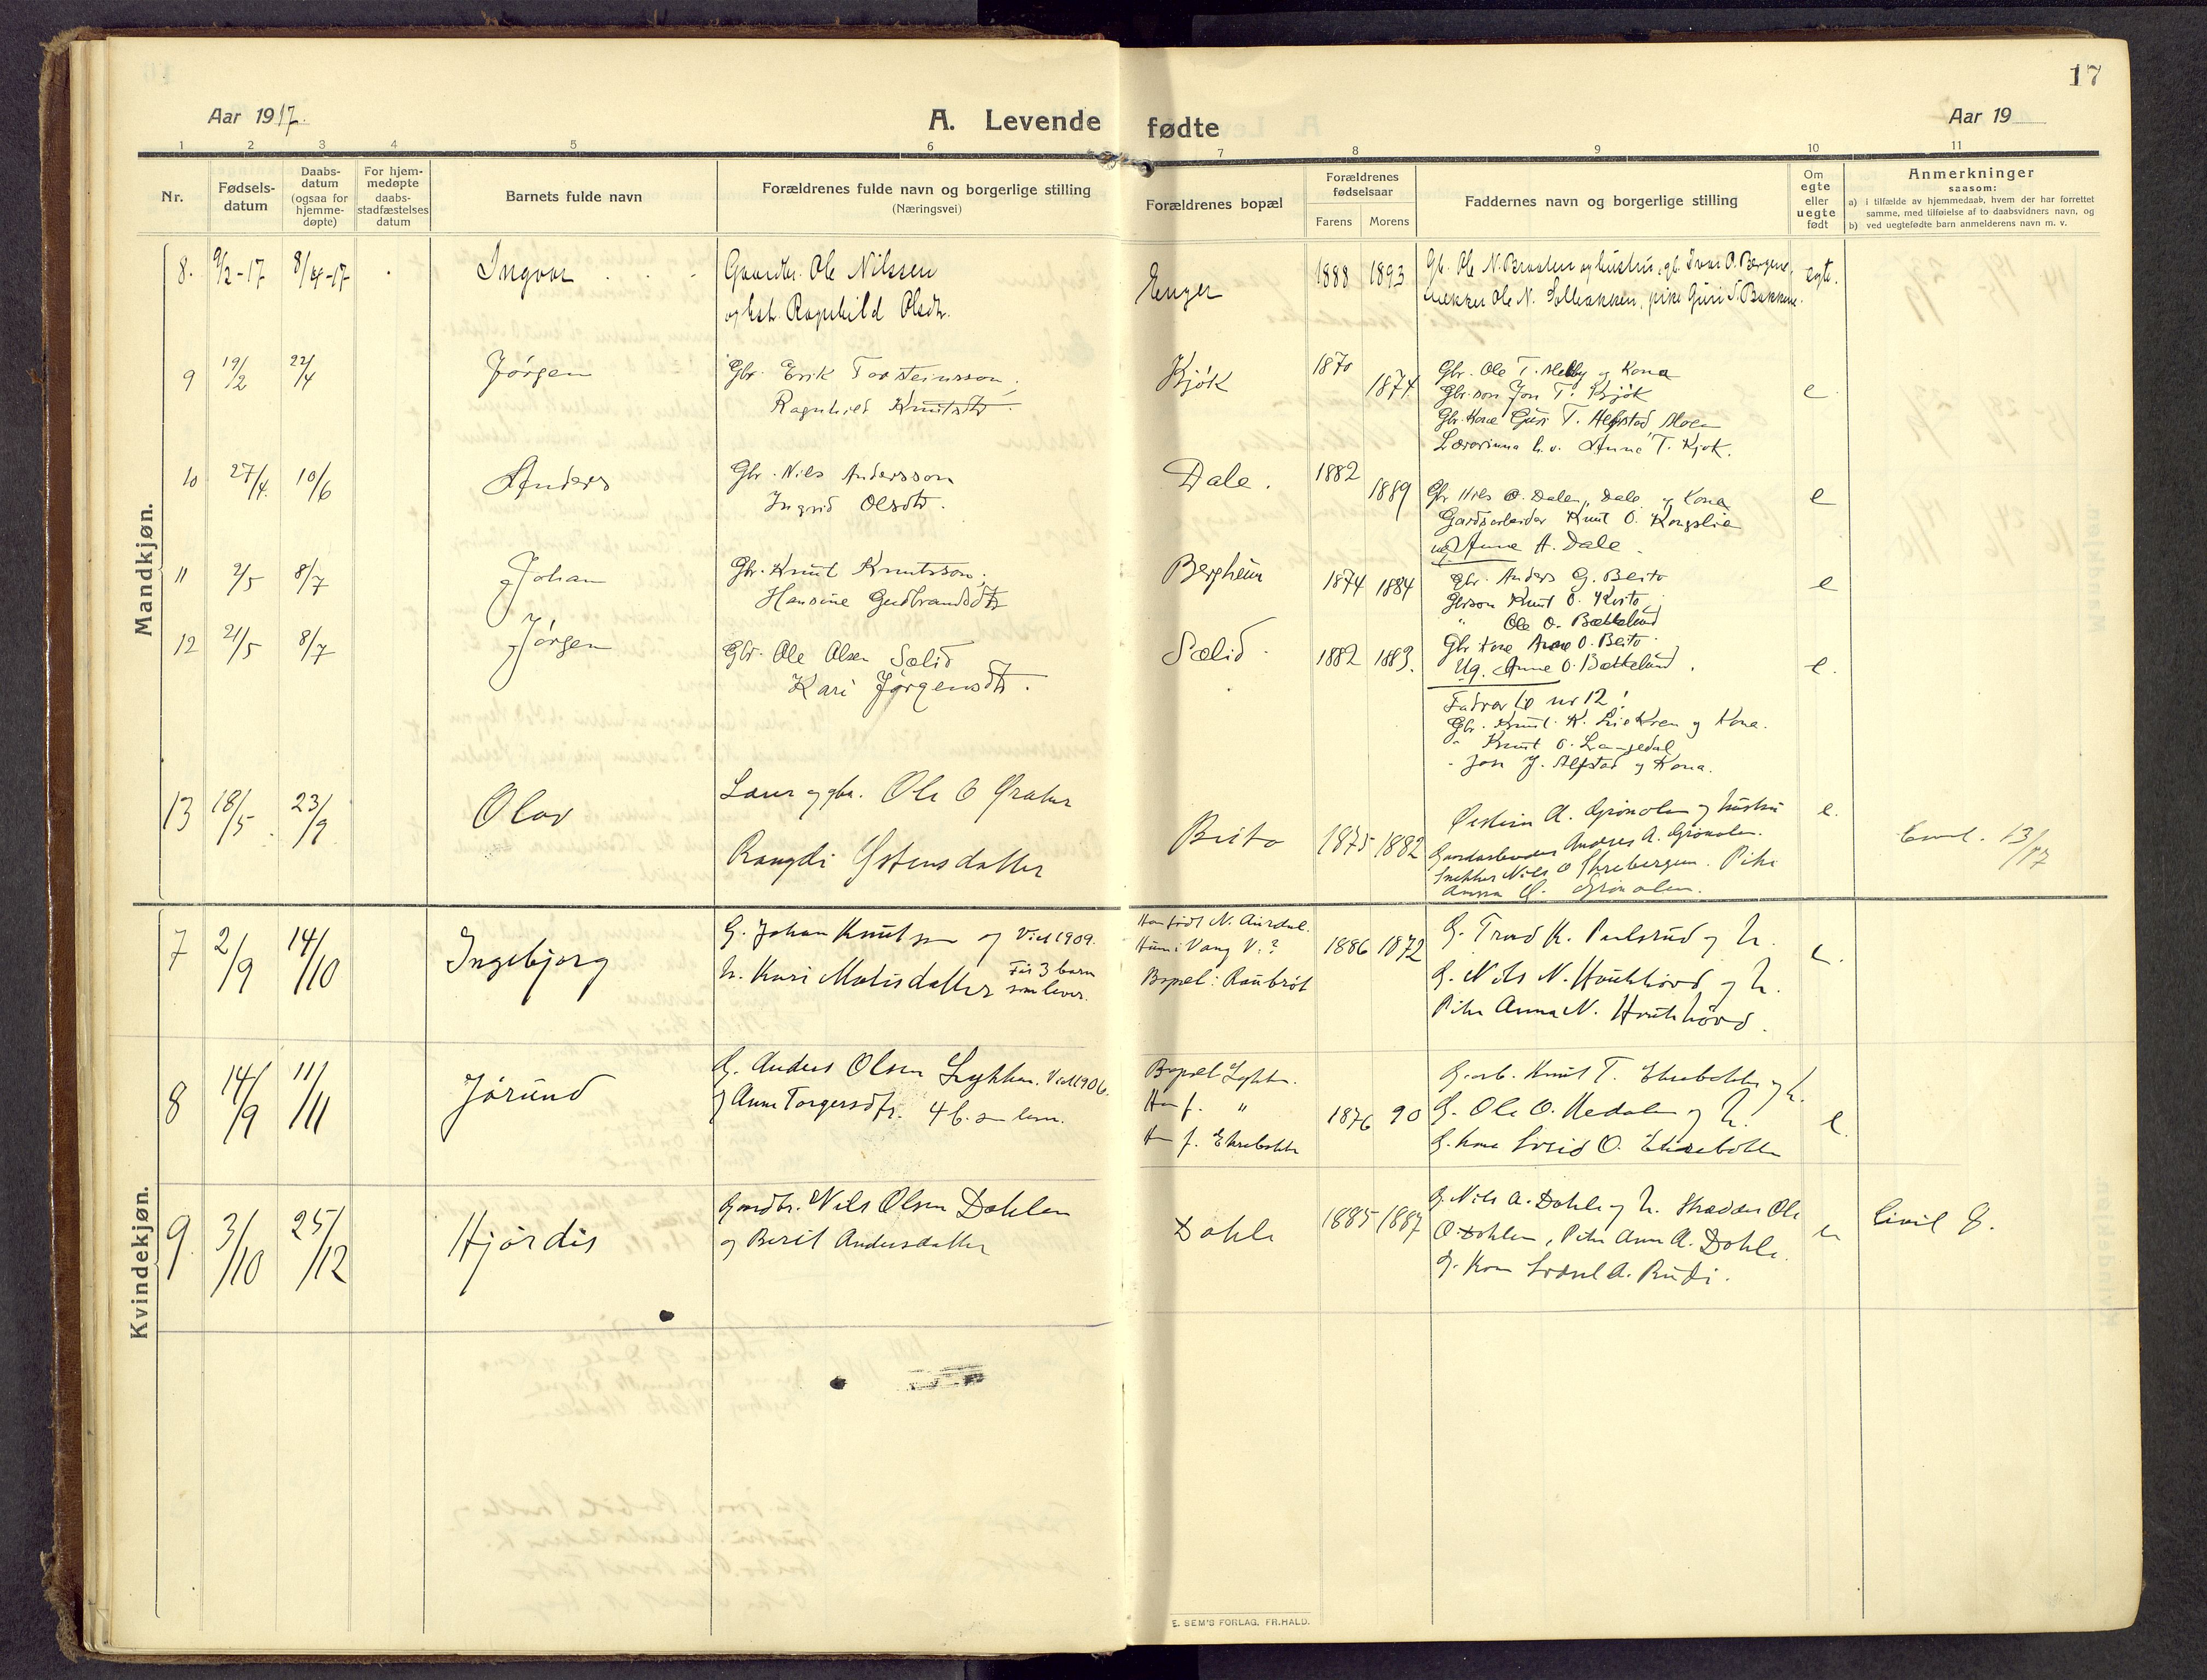 17
Aar 1917.
A. Levende fødte
Aar 19
1 2 3 4 5 6 7 8 9 10 11
Nr.
Fødsels-
datum
Daabs-
datum
(ogsaa for
hjemme-
døpte)
For hjem-
medøpte
daabs-
stadfæstelses
datum
Barnets fulde navn
Forældrenes fulde navn og borgerlige stilling
(Næringsvei)
Forældrenes bopæl
Forældrenes
fødselsaar
Farens Morens
Faddernes navn og borgerlige stilling
Om
egte
eller
uegte
født
Anmerkninger
saasom:
a) i tilfælde av hjemmedaab, hvem der har forrettet
samme, med tilføielse af to daabsvidners navn, og
b) ved uegtefødte barn anmelderens navn m. v.
Mandkjøn.
8. 9/2-17 8/4-17 Ingvar Gaardbr. Ole Nilssen
og hst. Ragnhild Olsdtr.
Enger 1888 1893 Gb. Ole N. Braaten og hustru, gb. Ivar O. Bergene,
snekker Ole N. Solbakken, pike Guri S. Bakkene. egte.
9 19/2 22/4 Jörgen Gbr. Erik Torsteinsson,
Ragnhild Knutsdtr.
Kjök 1870 1874 Gbr. Ole T. Melby og Kona
Gbr.son Jon T. Kjök
Gbr. Kone Guri T. Alfstad Moen
Lærarinna h.v. Anne T. Kjök.
e
10 27/4 10/6 Anders Gbr. Nils Andersson
Ingrid Olsdtr.
Dale. 1882 1889 Gbr Nils O. Dalen, Dale og Kona
Gardsarbeider Knut O. Kongslie
ug. Anne A. Dale.
e
11 2/5 8/7 Johan Gbr. Knut Knutsson,
Hansine Gudbrandsdtr
Bergheim 1874 1884 Gbr. Anders G. Beito
Gbrson Knut O. Kvito
" Ole O. Bækkelund
Gbr kone Anne O. Beito
Ug. Anne O. Bækkelund.
e
12 21/5 8/7 Jörgen Gbr. Ole Olsen Sælid
Kari Jørgensdtr.
Sælid 1882 1883. e.
Fadrar te nr 12!
Gbr. Knut K. Liekren og Kona.
" Knut O. Langedal
" Jon J. Alfstad og Kona.
13 18/5 23/9 Olav Lærer og gbr. Ole O
Rangdi Ystensdatter
Beito 1875 1882 Østein A. Grønolen og hustru
Gaardarbeider Andres A. Grönolen.
Snekker Nils O Skrebergen. Pike
Anna O. Grönolen.
e. 13/17
Kvindekjøn.
7 2/9 14/10 Ingebjørg G. Johan Knutsen og Viet 1909.
h. Kari Matisdatter Før 3 barn
som lever.
Han født N. Aurdal.
Hun i Vang V.?
Bopæl: Raubröt
1886 1872 G. Trond K. Paulsrud og h.
G. Nils N. Haukhövd og h.
Pike Anna N. Haukhövd.
e.
8 14/9 11/11 Jórund G. Anders Olsen Lykken. Viet 1906.
og Anne Torgersdtr. 4 b. som lever.
Bopæl Lykken.
Han f. "
Hun f.
1876 90 G.arb. Knut T. og h.
G. Ole O. Hedalen og h.
G. kone O.
e.
9 3/10 25/12 Hjördis Gaardbr. Nils Olsen Dahlen
og Berit Andersdatter
Dahle 1885 1887 G. Nils A. Dahle og h. Skrædder Ole
O. Dahlen, Pike Anne A. Dahle.
G. Kone A. Rudi.
e Civil E.
E. SEM'S FORLAG, FR.HALD.